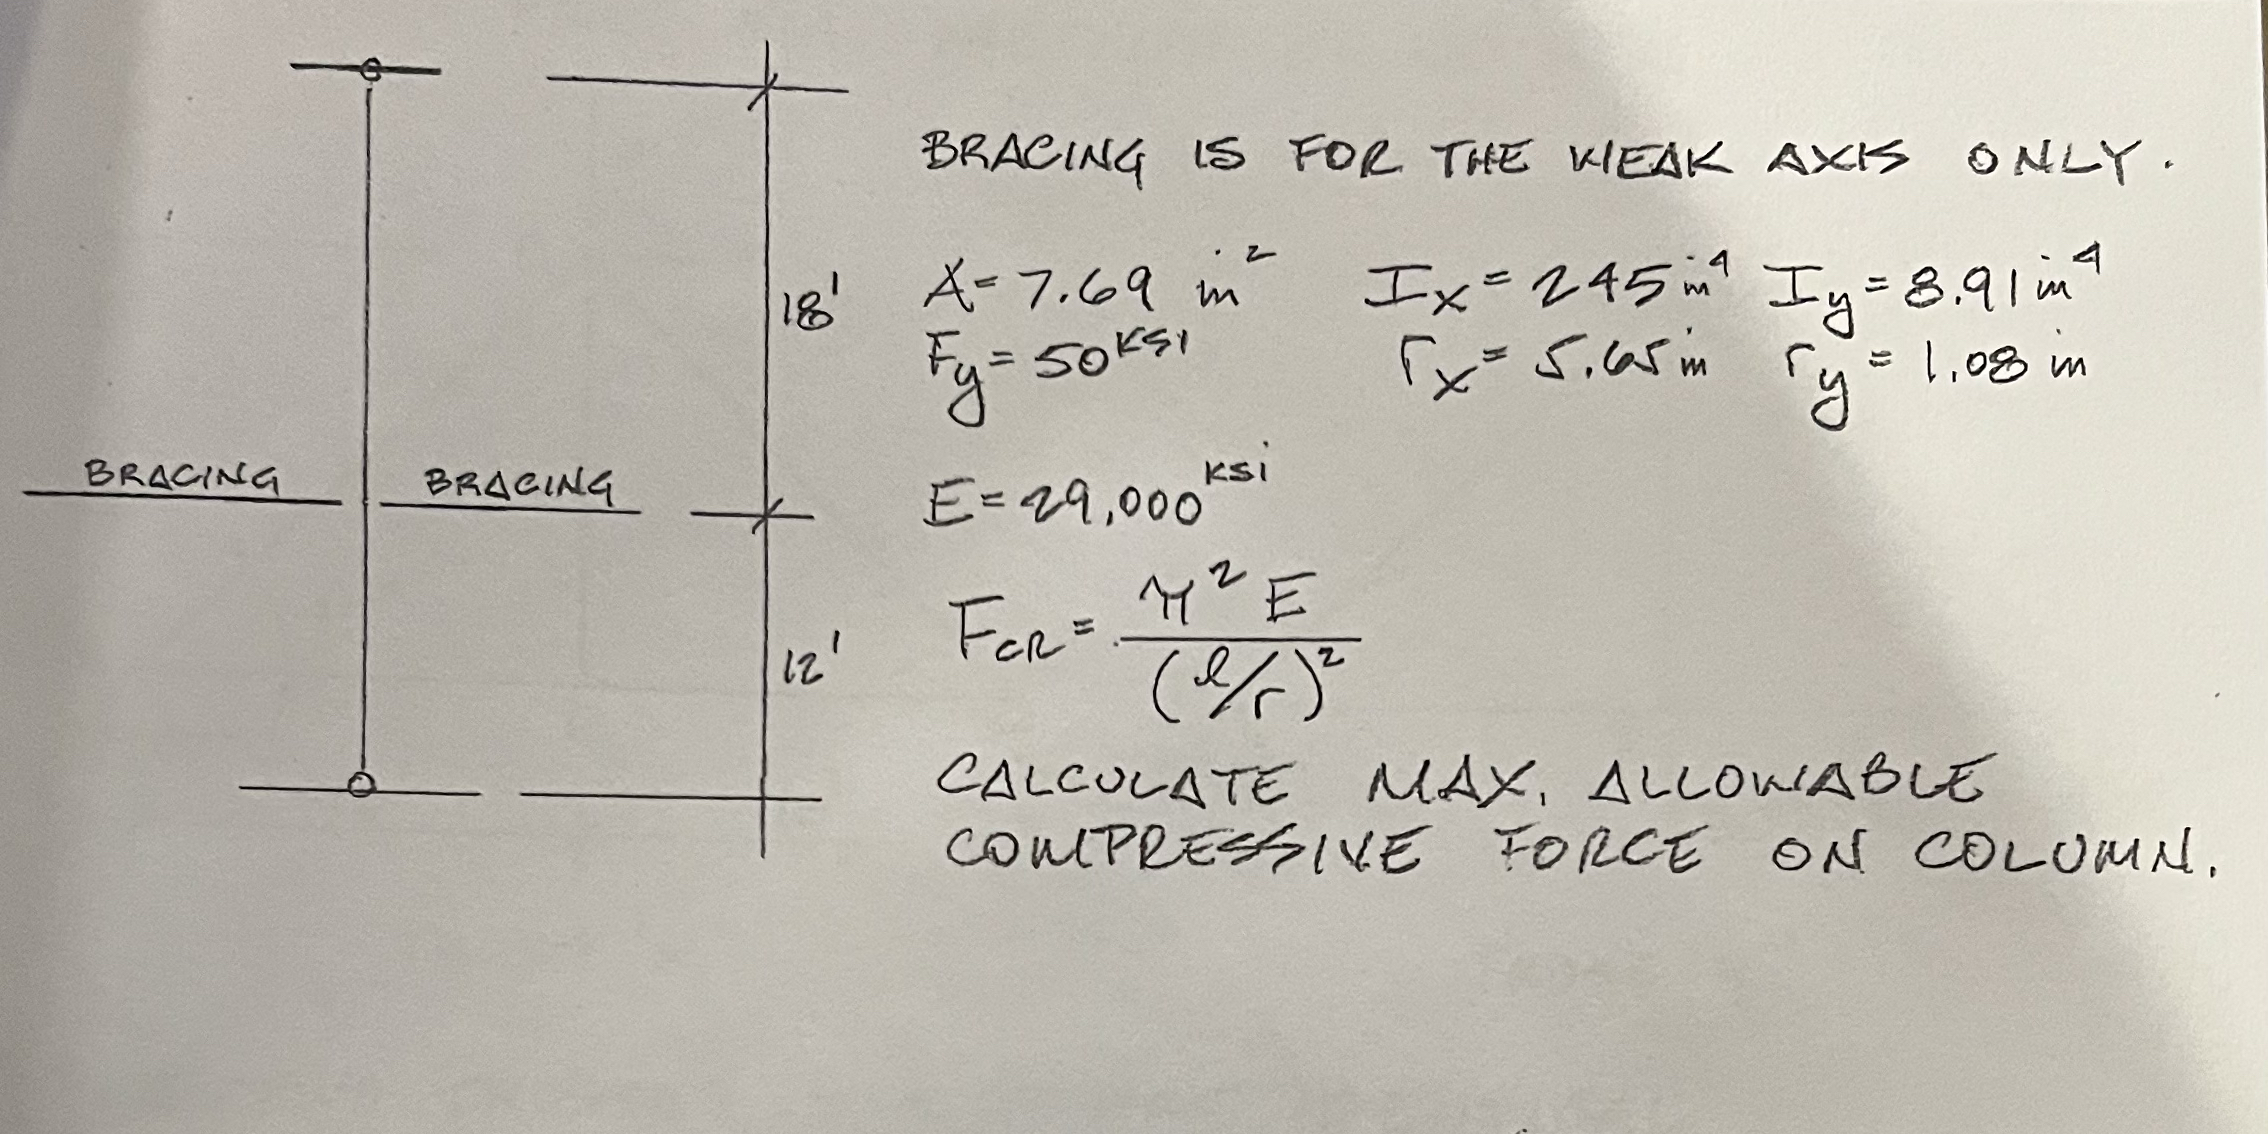 BRACING IS FOR THE WEAK AXIS ONLY.
A=7.69 in² Ix=245 in⁴ Iy=8.91 in⁴
18'
Fy=50 KSI rx=5.65 in ry=1.08 in
BRACING BRACING
E=29,000 ksi
FCR= π² E / (l/r)²
12'
CALCULATE MAX. ALLOWABLE
COMPRESSIVE FORCE ON COLUMN.